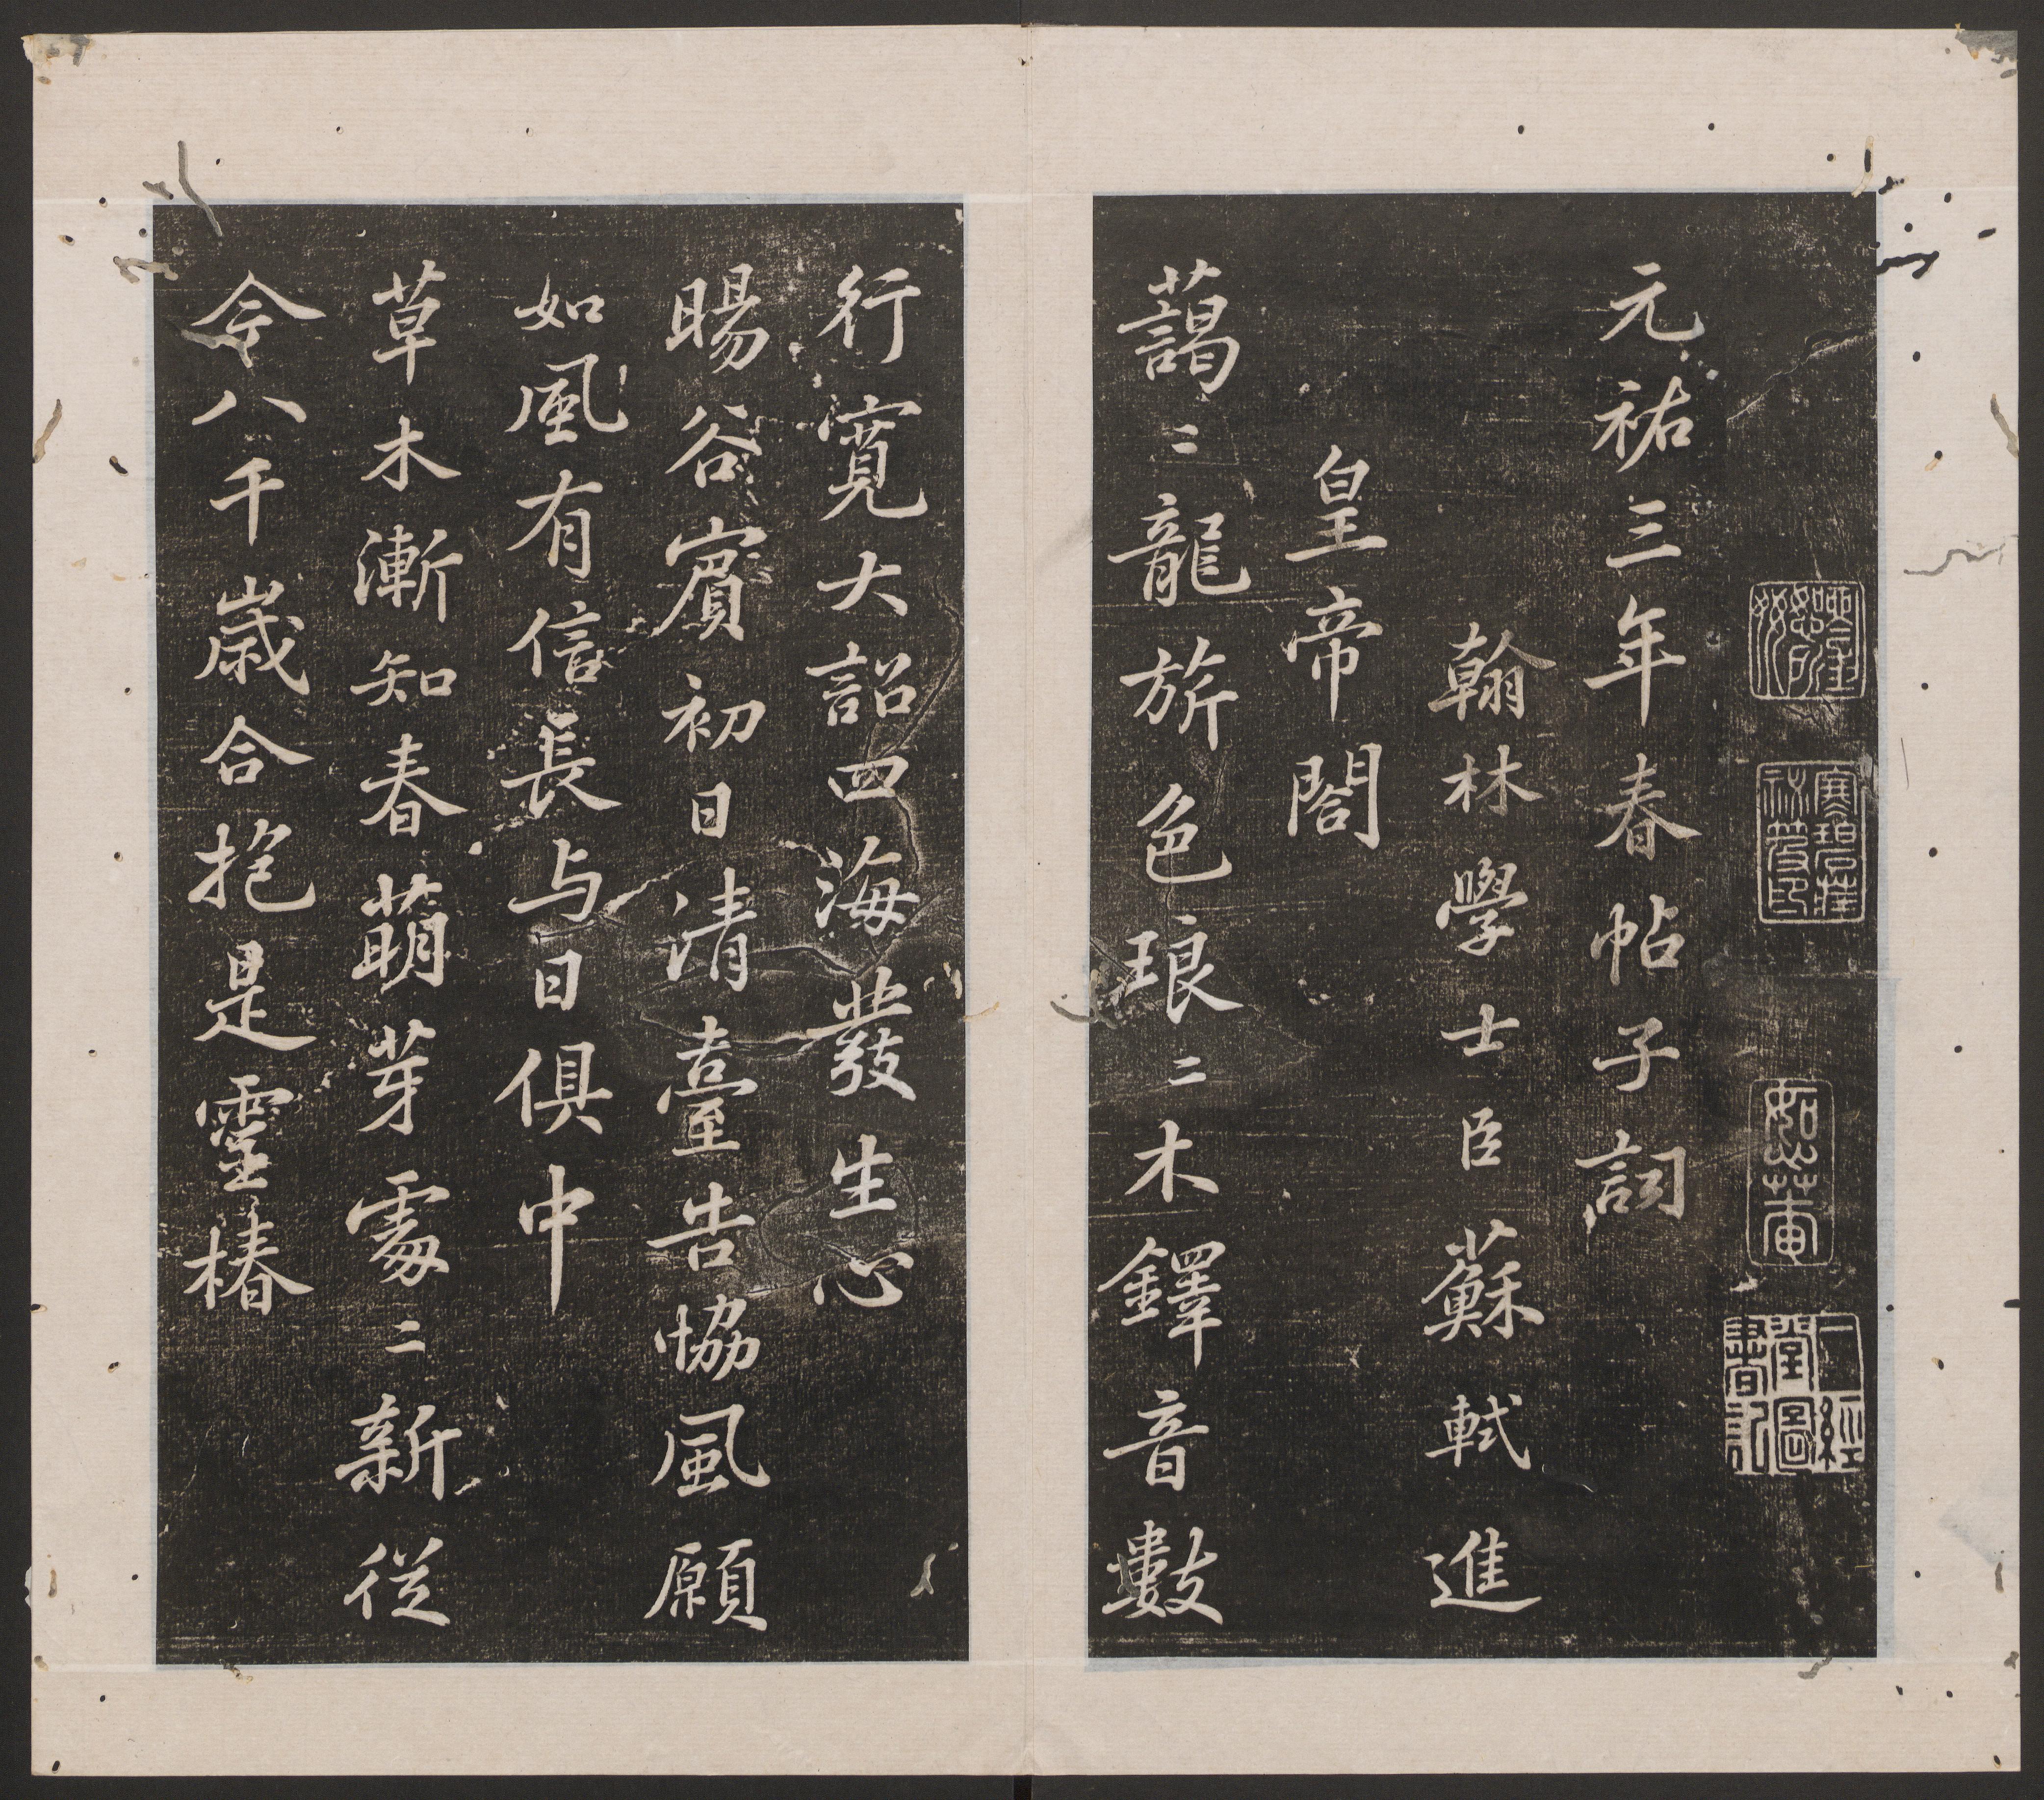 元祐三年春帖子詞
翰林學士臣蘇軾進
皇帝閣
藹二龍旂色琅二木鐸音數
行寬大詔四海發生心
暘谷賓初日清臺告協風願
如風有信長与日俱中
草木漸知春萌芽處二新從
今八千歲合抱是靈椿
如菴